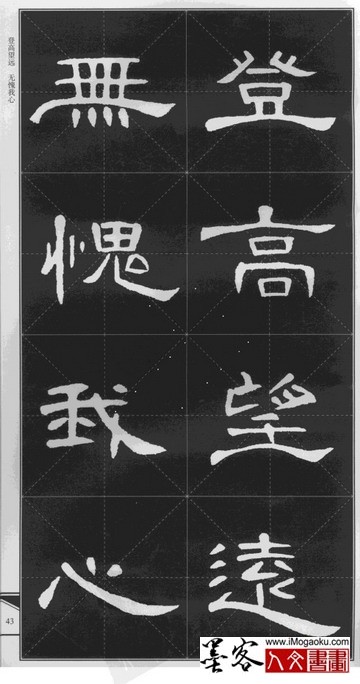 登高望遠
無愧我心
登高望远 无愧我心
43
墨客
www.iMogaoku.com
人文書畫